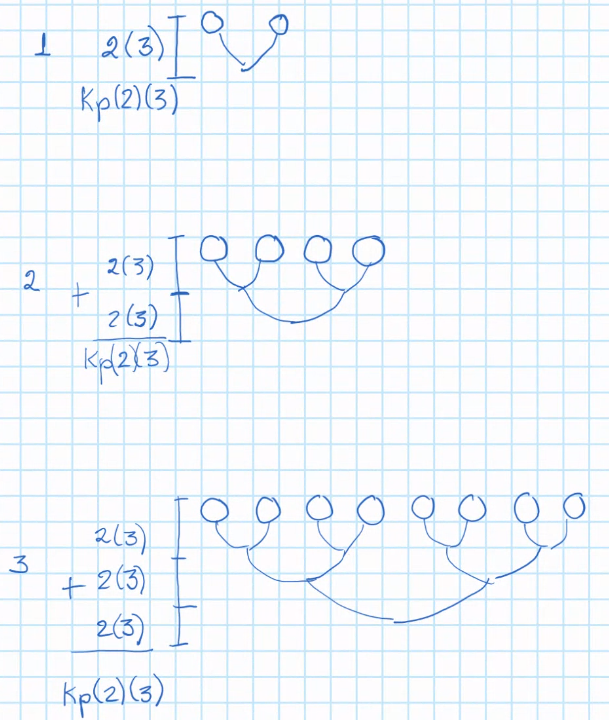 1 2(3)
Kp(2)(3)
2 2(3)
+ 2(3)
Kp(2)(3)
2(3)
3 + 2(3)
2(3)
Kp(2)(3)